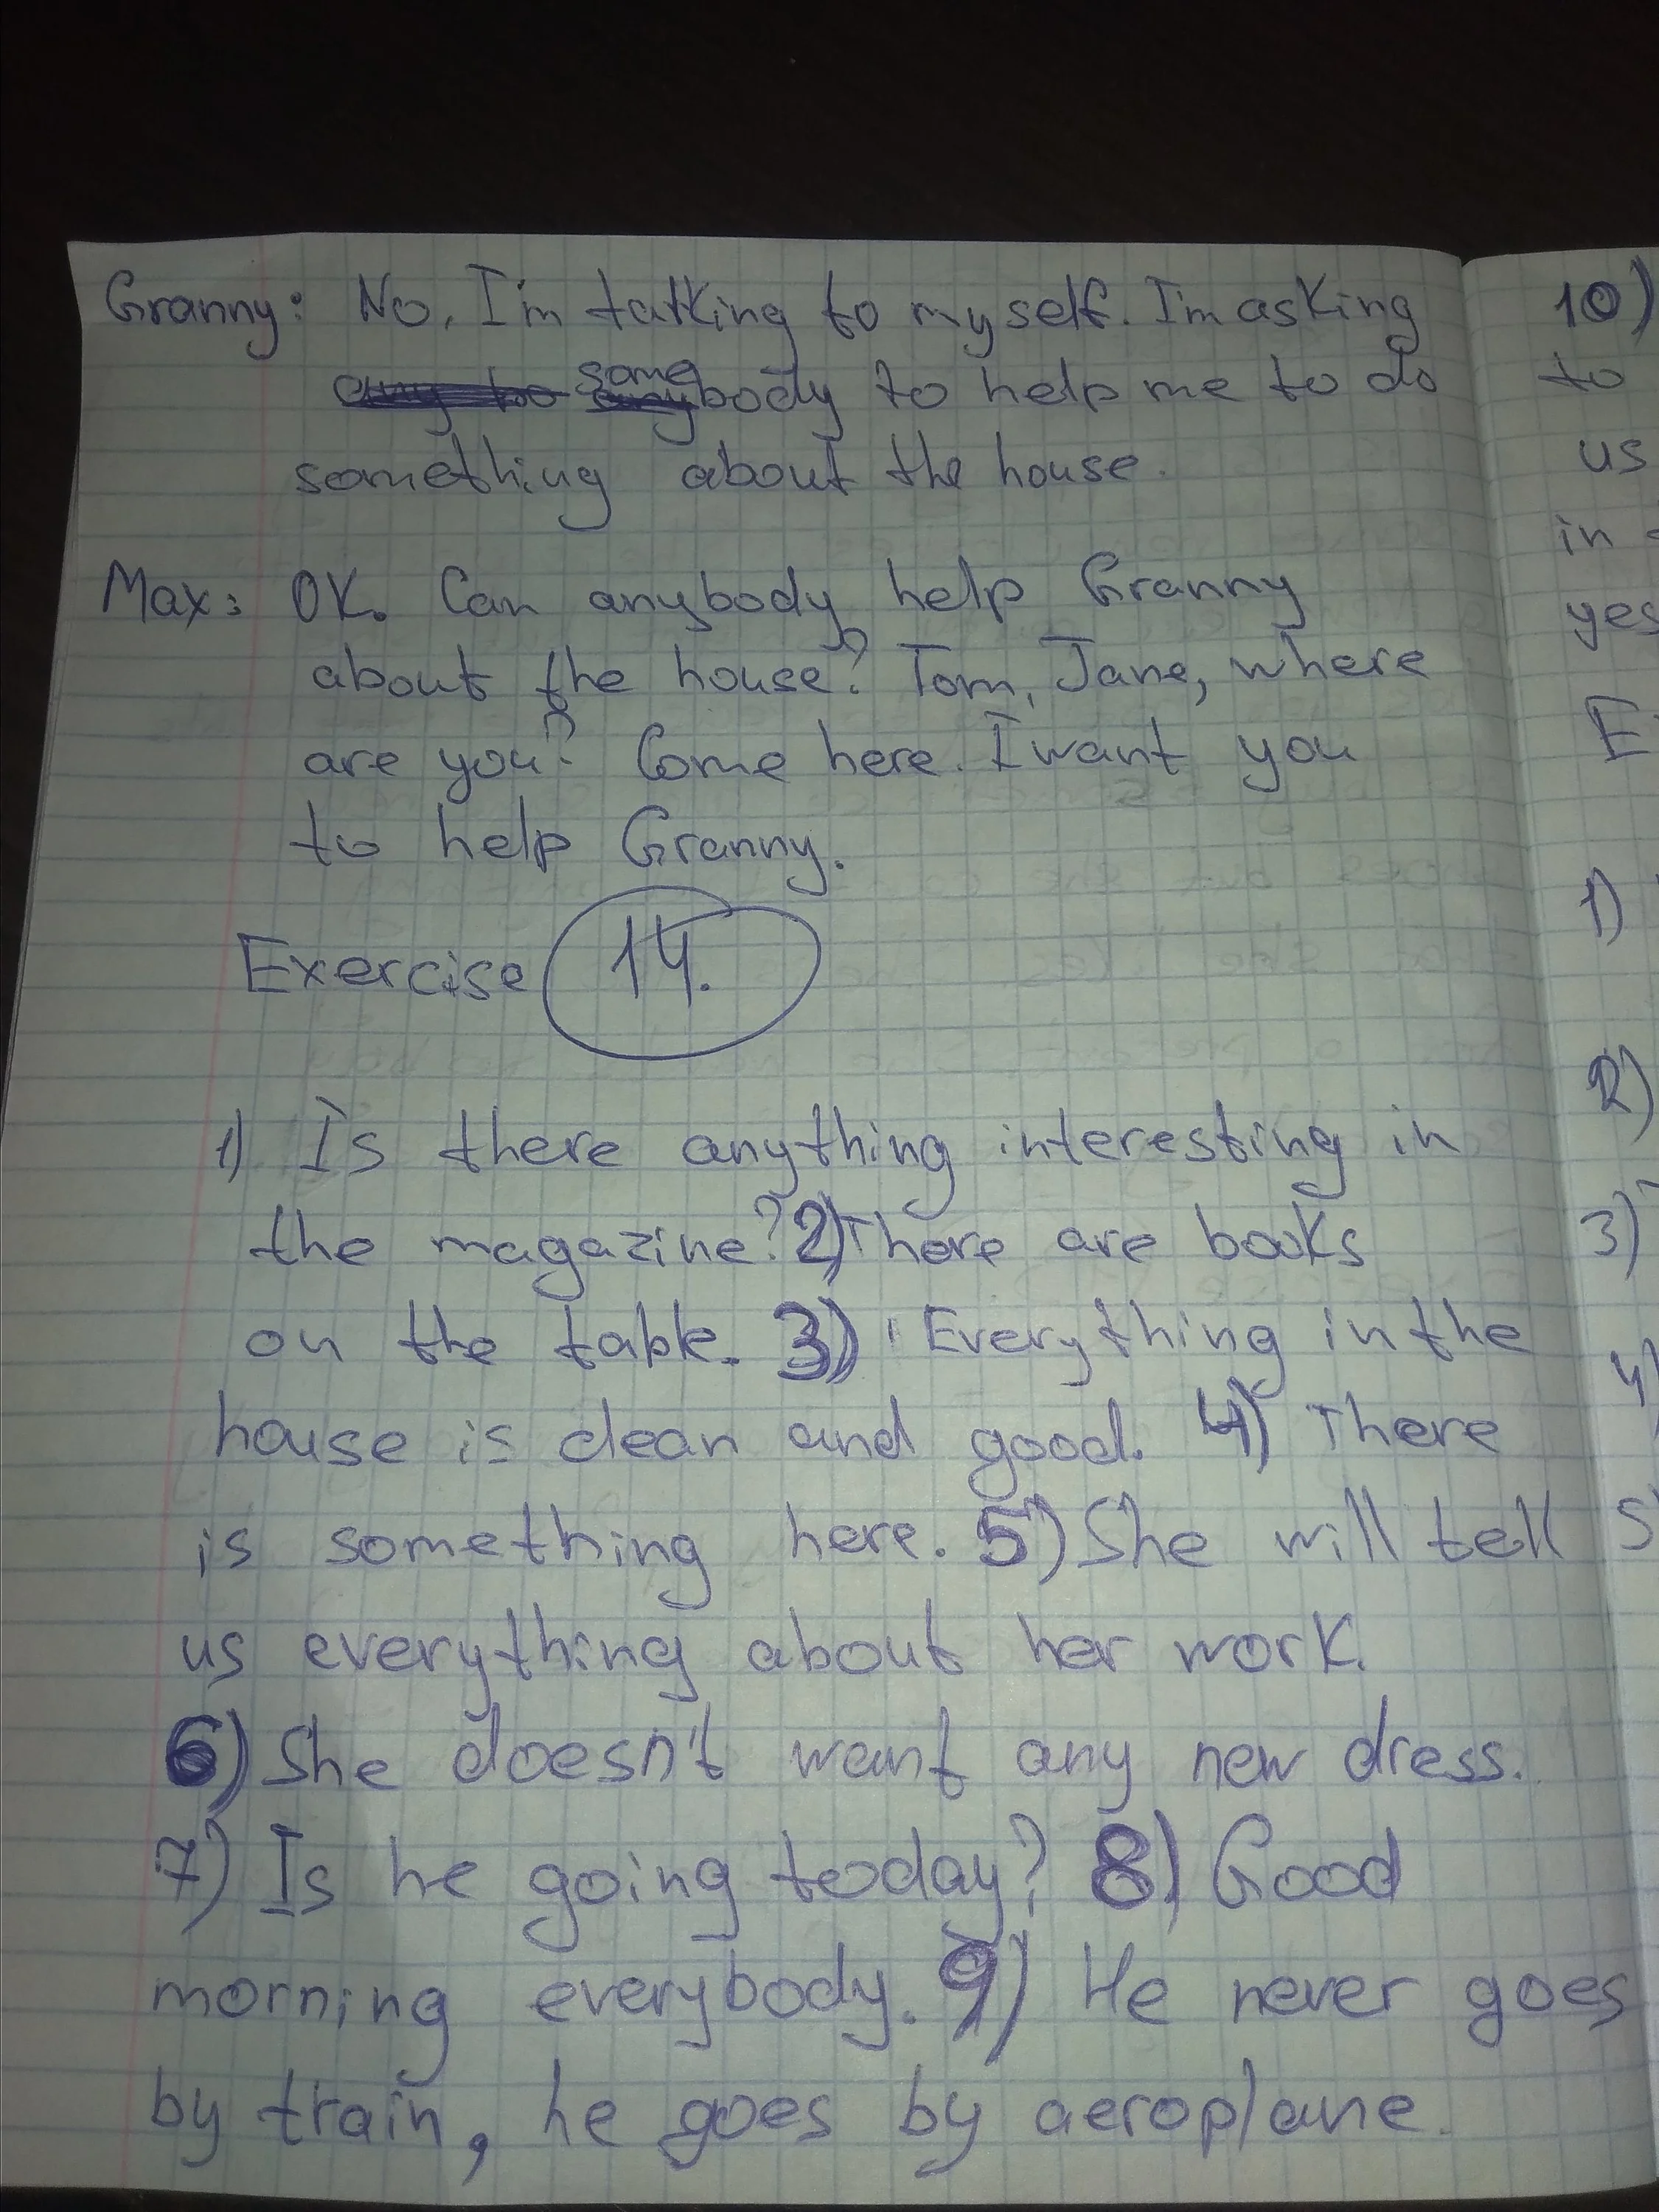 Granny: No, I'm talking to myself. I'm asking
somebody to help me to do
something about the house.
Max: OK. Can anybody help Granny
about the house? Tom, Jane, where
are you? Come here. I want you
to help Granny.
Exercise 14.
1) Is there anything interesting in
the magazine? 2) There are books
on the table. 3) Everything in the
house is clean and good. 4) There
is something here. 5) She will tell
us everything about her work.
6) She doesn't want any new dress.
7) Is he going today? 8) Good
morning everybody. 9) He never goes
by train, he goes by aeroplane.
10)
to
us
in
yes
E
1)
2)
3)
4)
5